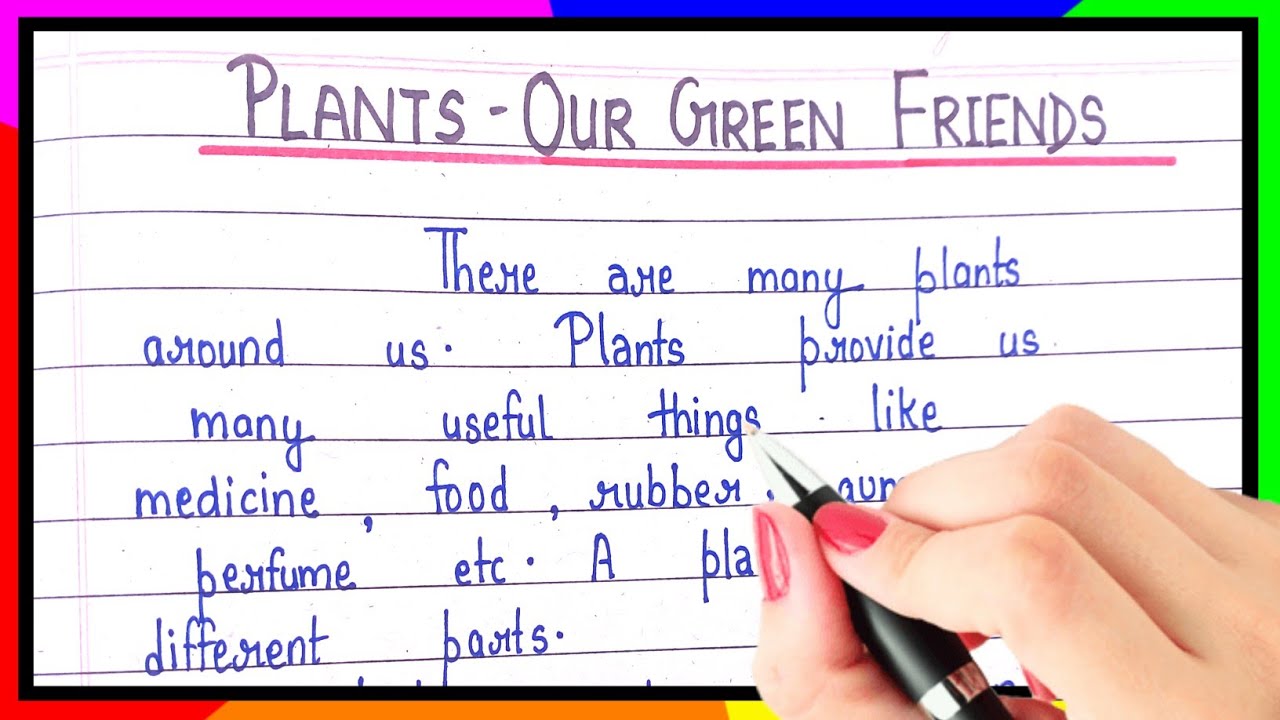 PLANTS - OUR GREEN FRIENDS
There are many plants
around us. Plants provide us
many useful things. like
medicine, food, rubber,
perfume etc. A
different parts.